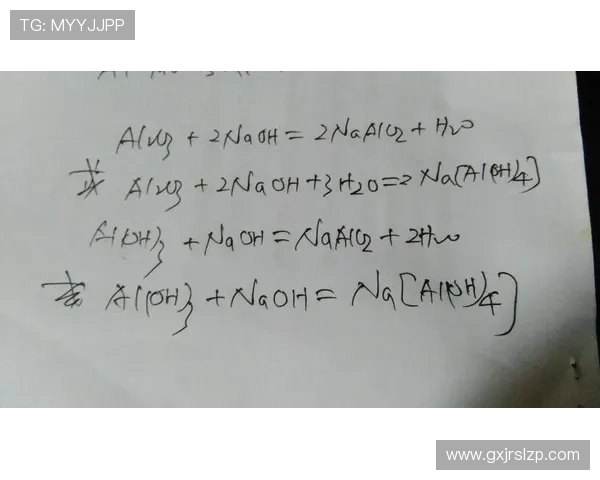 TG: MYYJJPP
Al2O3 + 2NaOH = 2NaAlO2 + H2O
或 Al2O3 + 2NaOH + 3H2O = 2Na[Al(OH)4]
Al(OH)3 + NaOH = NaAlO2 + 2H2O
或 Al(OH)3 + NaOH = Na[Al(OH)4]
www.gxjrslzp.com